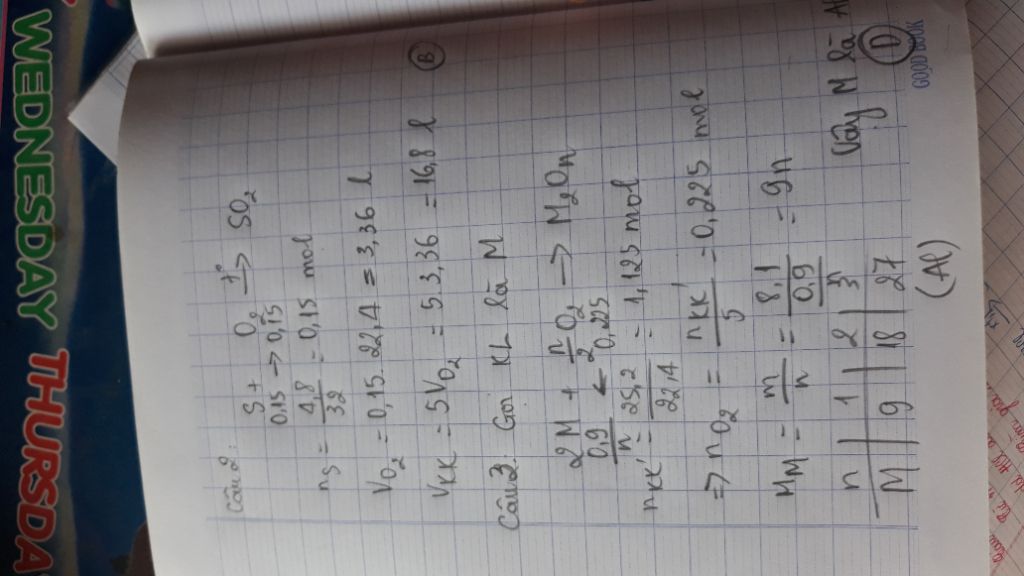 WEDNESDAY THURSDA
Câu 2:
S + O₂ →(t°) SO₂
0,15 → 0,15
nS = 4,8/32 = 0,15 mol
VO₂ = 0,15 . 22,4 = 3,36 l
VKK = 5VO₂ = 5. 3,36 = 16,8 l (B)
Câu 3: Gọi KL là M
2M + n/2 O₂ → M₂On
0,9/n ← 0,225
nKK' = 25,2/22,4 = 1,125 mol
=> nO₂ = nKK'/5 = 0,225 mol
MM = m/n = 8,1/(0,9/n) = 9n
n | 1 | 2 | 3
M | 9 | 18 | 27
(Al)
Vậy M là
(D)
GOOD BOOK